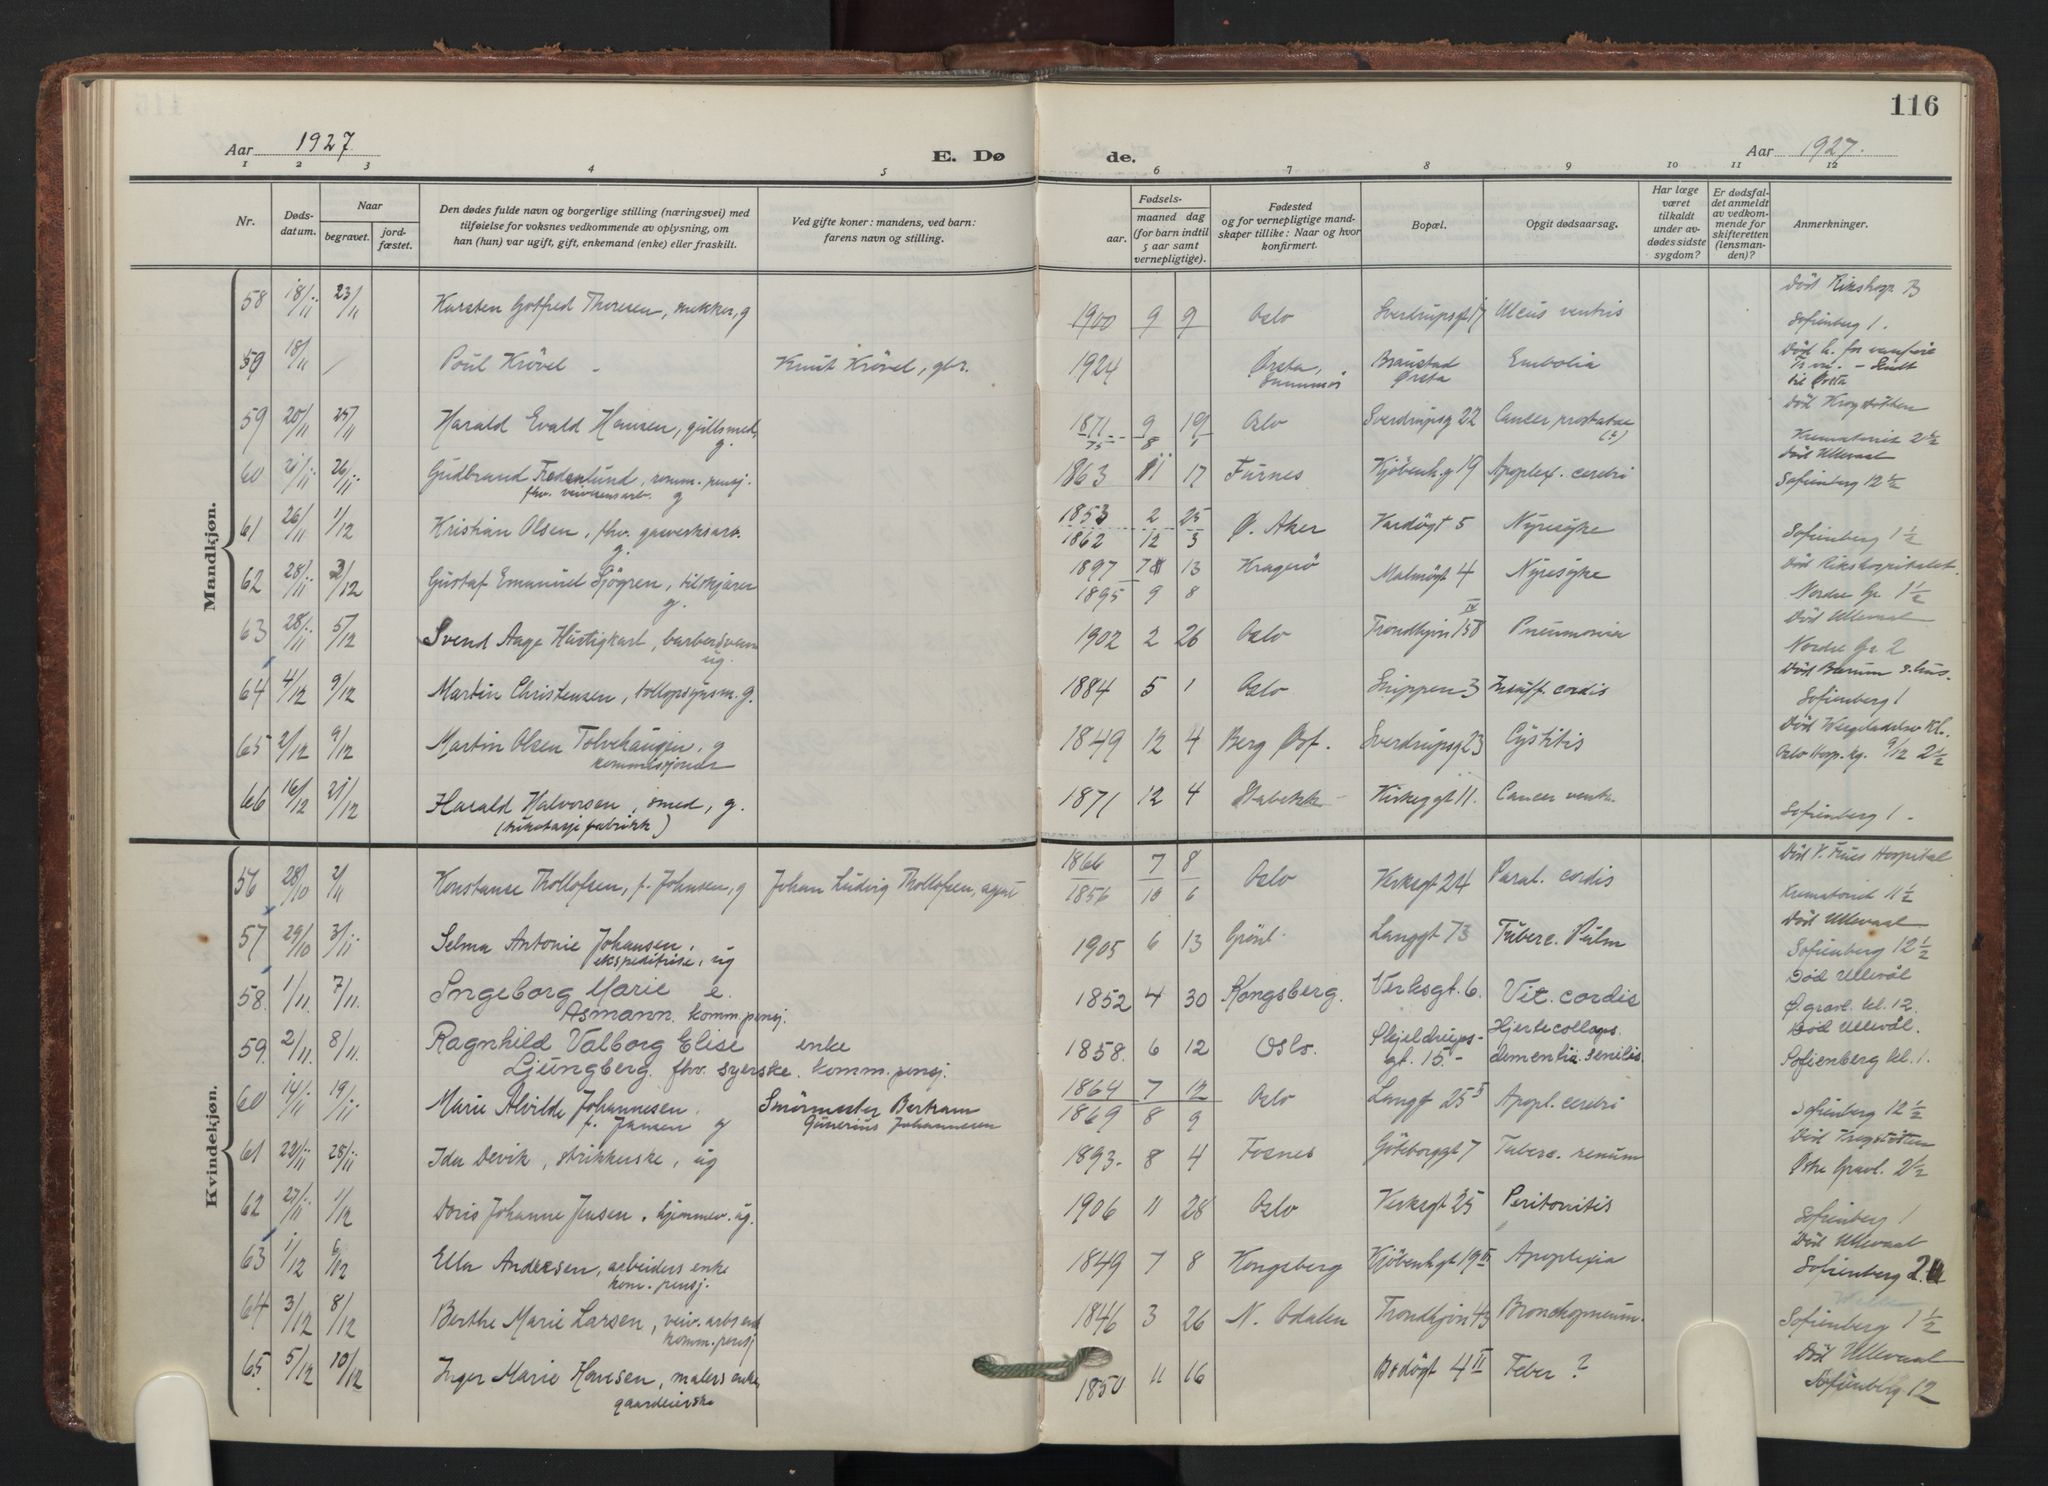 116
Aar 1927. E. Dø de. Aar 1927.
1 2 3 4 5 6 7 8 9 10 11 12
Nr. Døds-datum. Naar begravet. jord-fæstet. Den dødes fulde navn og borgerlige stilling (næringsvei) med tilføielse for voksnes vedkommende av oplysning, om han (hun) var ugift, gift, enkemand (enke) eller fraskilt. Ved gifte koner: mandens, ved barn: farens navn og stilling. Fødsels- aar. maaned dag (for barn indtil 5 aar samt vernepligtige). Fødested og for vernepligtige mandskaper tillike: Naar og hvor konfirmert. Bopæl. Opgit dødsaarsag. Har læge været tilkaldt under avdødes sidste sygdom? Er dødsfaldet anmeldt av vedkommende for skifteretten (lensmanden)? Anmerkninger.
Mandkjøn.
58 18/11 23/11 Karsten Gotfred Thoresen, g 1900 9 9 Oslo Sverdrupsgt 17 Ulcus ventris Død Rikshosp. B
Sofienberg 1.
59 18/11 / Poul Krövel Knut Krövel, gbr. 1924 Ørsta, Ørsta Embolia
til Ørsta
59 20/11 25/11 Harald Evald Hansen, gullsmed, g. 1871 9 19 Oslo Sverdrupsg 22 Cancer prostatae Død Krogstötten
75 8 1 Krematoriet 2 1/2
60 21/11 26/11 Gudbrand Fredenlund, komm. pensj. 1863 11 17 Furnes Kjöbenh.g 19 Apoplex. cerebri Død Ullevaal
fhv. veivesensarb. g Sofienberg 12 1/2
61 26/11 1/12 Kristian Olsen, fhv. gasverksarb. g. 1853 2 25 Ø. Aker Vardögt 5 Nyresyke
1862 12 3 Sofienberg 1 1/2
62 28/11 3/12 Gustaf Emanuel Sjögren, tilskjærer g. 1897 7 13 Kragerö Malmögt 4 Nyresyke Död Rikshospitalet.
1895 9 8 Nordre Gr. 1 1/2
63 28/11 5/12 Svend Aage Hustigkarl, barbersvenn ug. 1902 2 26 Oslo Trondhjvn 158 IV Pneumonia Død Ullevaal
Nordre Gr. 2
64 4/12 9/12 Martin Christensen, tollopsynsm. g. 1884 5 1 Oslo Snippen 3 Insuff. cordis Død Bærum s.hus.
Sofienberg 1
65 2/12 9/12 Martin Olsen Tolvehaugen, g 1849 12 4 Berg Øsf. Sverdrupsg 23 Cystitis Død Wergelandsv Kl.
kommisjonær Oslo Hosp. kg. 9/12 2 1/2
66 16/12 21/12 Harald Halvorsen, smed, g. 1871 12 4 Stabekk Kirkeggt 11. Cancer ventr.
(trikotasjefabrikk) Sofienberg 1.
Kvindekjøn.
56 28/10 2/11 Konstanse Thollofsen, f. Johnsen, g Johan Ludvig Thollofsen, agent 1866 7 8 Oslo Verksgt 24 Paral. cordis Död V. Frues Hospital
1856 10 6 Krematoriet 11 1/2
57 29/10 3/11 Selma Antonie Johansen. 1905 6 13 Grönl. Langgt 73 Tuberc. Pulm Död Ullevaal
ekspeditrise, ug Sofienberg 12 1/2
58. 1/11. 7/11. Ingeborg Marie e. 1852 4 30 Kongsberg. Verksgt. 6. Vit. cordis Död Ullevål
Asmann. komm. pensj. Ø. gravl. kl. 12.
59. 2/11. 8/11. Ragnhild Valborg Elise enke 1858. 6 12 Oslo. Skjeldrupsgt. 15.- Hjertecollaps. dementia senilis Död Ullevål.
Ljungberg. fhv. syerske. komm. pensj. Sofienberg kl. 1.
60 14/11 19/11 Marie Alvilde Johannesen. Smörmester Bertram 1864 7 12 Oslo Langgt 25 Apopl. cerebri
f. Jansen g Gunerius Johannesen 1869 8 9 Sofienberg 12 1/2
61 22/11 28/11 Ida Devik, strikkerske, ug 1893. 8 4 Fosnes Göteborggt 7 Tuberc. renum Död Krogstötten
Østre Gravl. 2 1/2
62 27/11 1/12 Doris Johanne Jensen. hjemmev. ug. 1906 11 28 Oslo Verksgt 25 Peritonitis
Sofienberg 1
63 1/12 6/12 Ella Andersen, arbeiders enke 1849 7 8 Kongsberg Kjöbenhgt 19 II Apoplexia Död Ullevaal
kom. pensj. Sofienberg 2.
64 3/12 8/12 Berthe Marie Larsen, veiv. arbs enke 1846 3 26 N. Odalen Trondhjvn 43 Bronchopneum.
komm. pensj Sofienberg 1 1/2
65 5/12 10/12 Inger Marie Hansen, malers enke, 1850 11 16 Bodögt 4 II Feber ? Död Ullevaal
gaardeierske Sofienberg 12